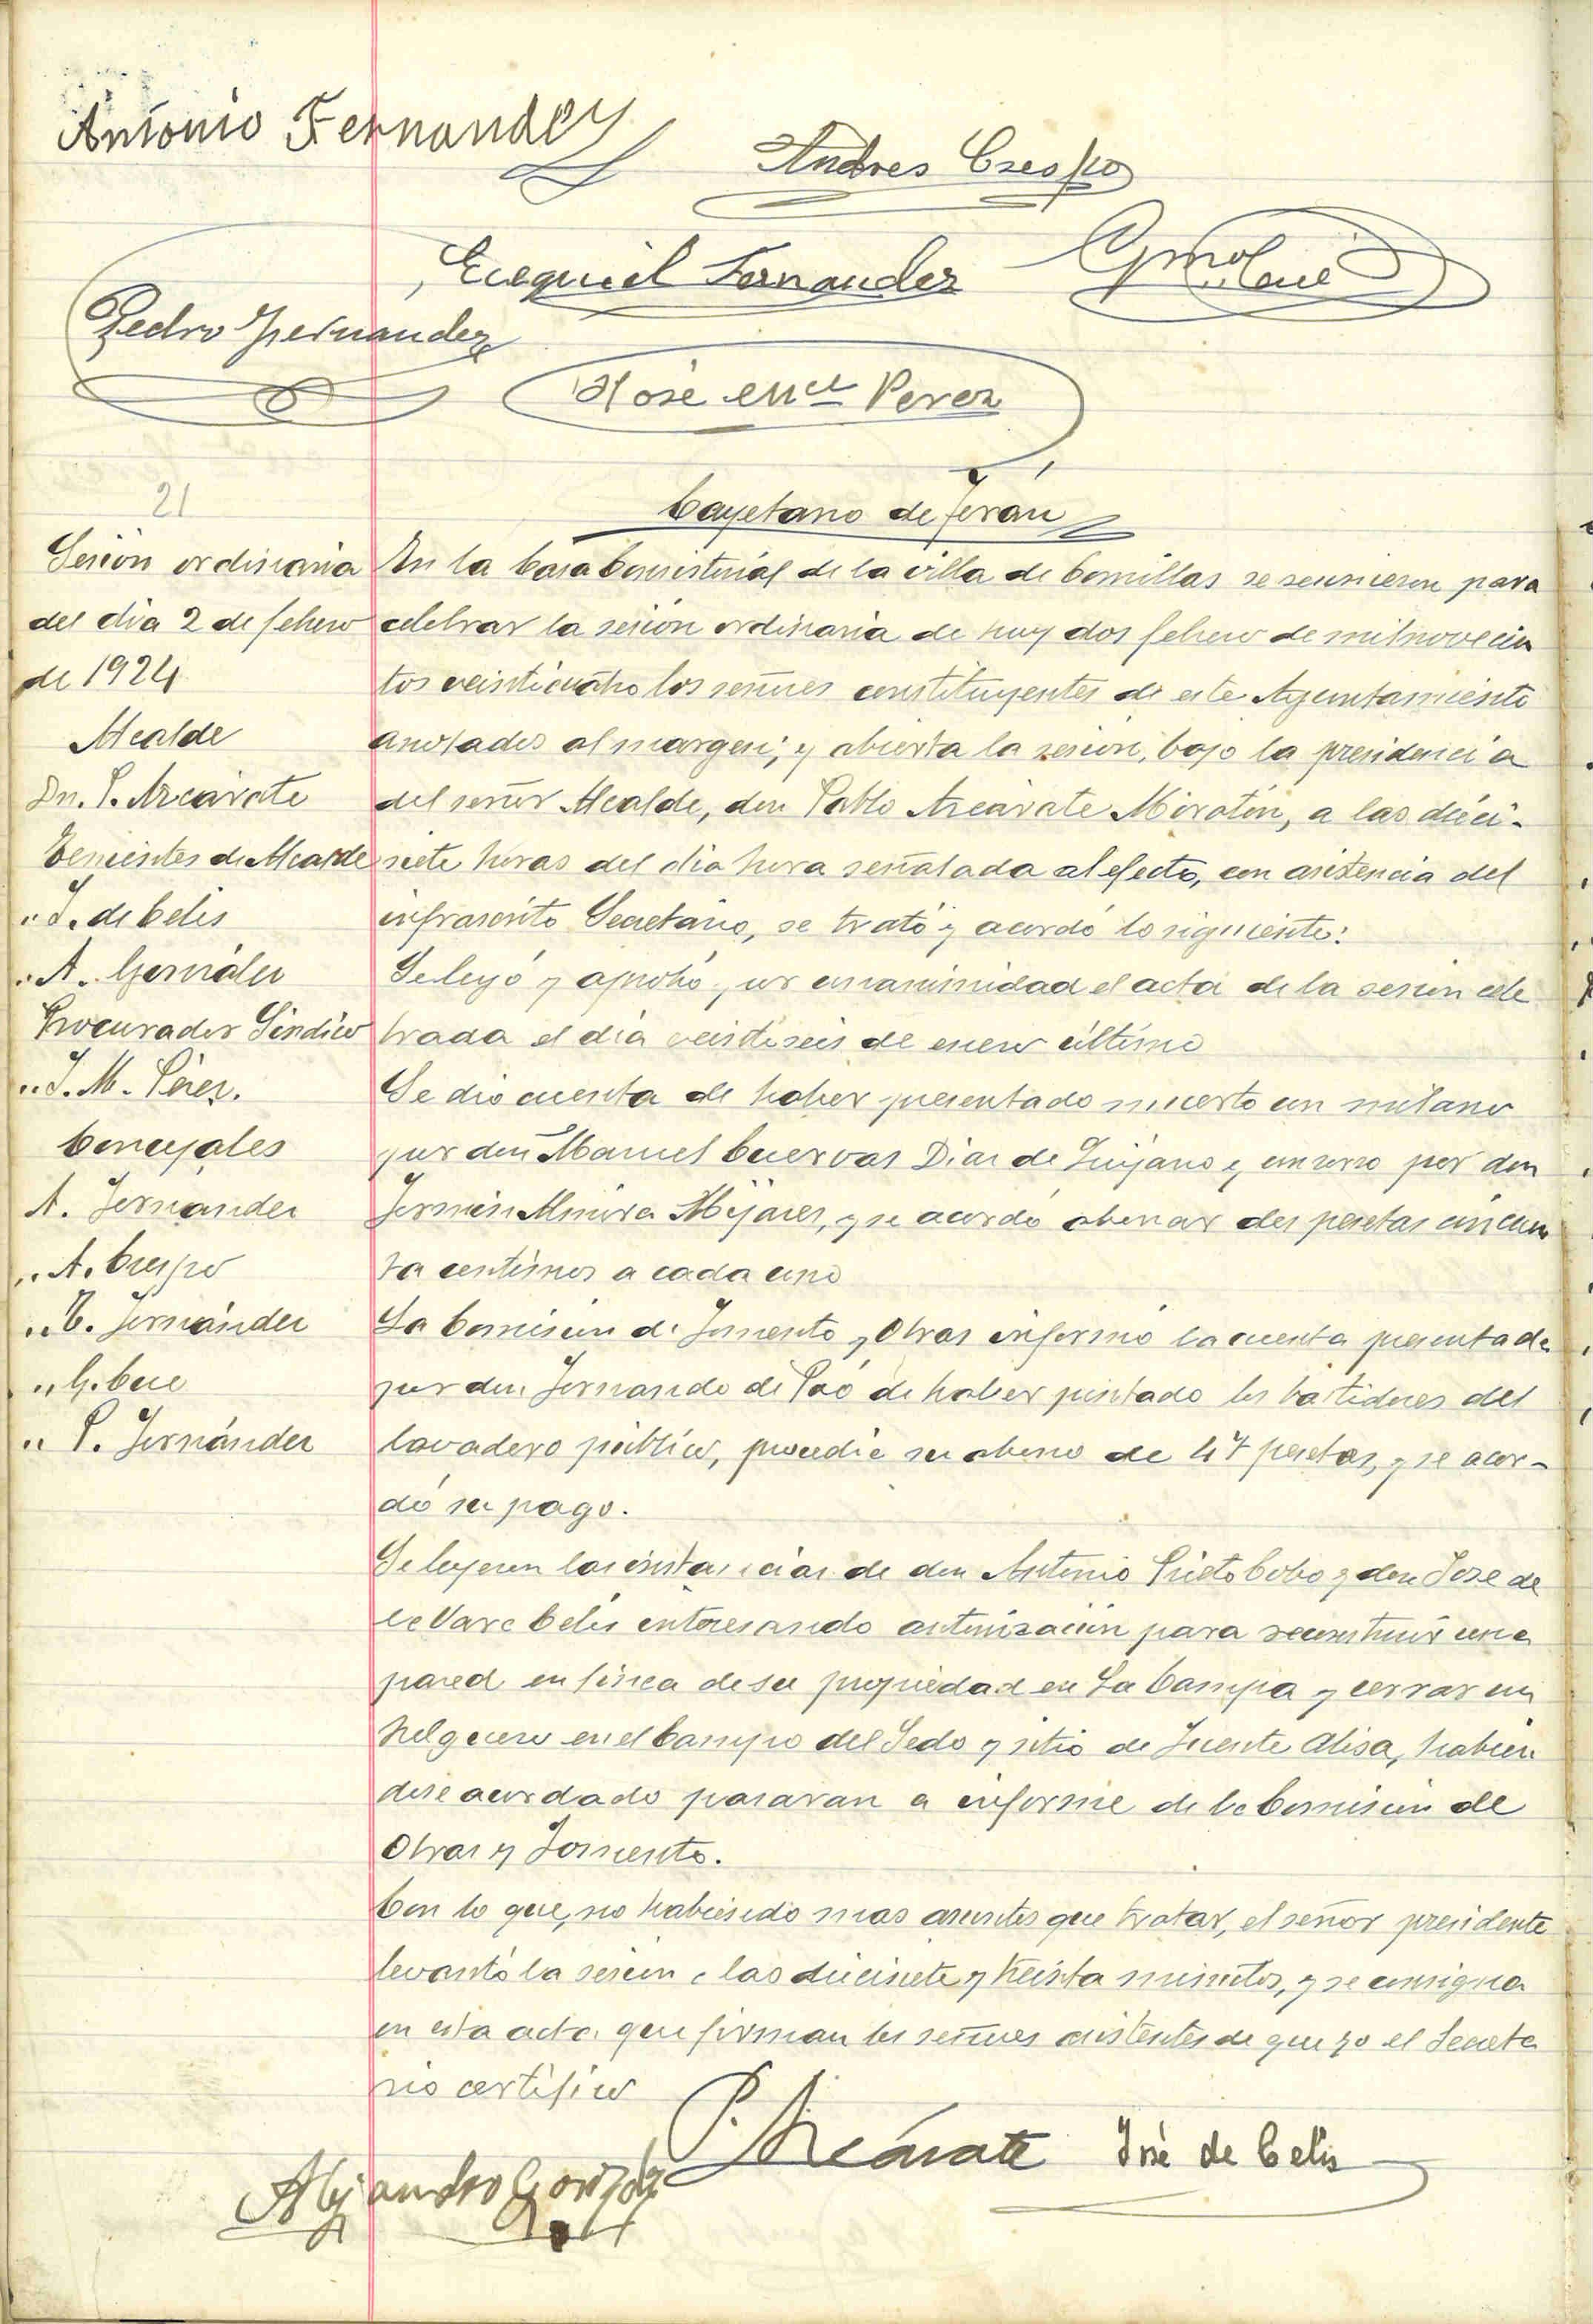 Antonio Fernandez
Andres Crespo
Ezequiel Fernandez
Pedro Fernandez
José Mª Perez
Cayetano de Terán
21
Sesión ordinaria
del dia 2 de febrero
de 1924
Alcalde
Dn. P. Azcárate
Tenientes de Alcalde
" J. de Celis
" A. González
Procurador Síndico
" J. M. Pérez.
Concejales
A. Fernández
" A. Crespo
" E. Fernández
" G. Cue
" P. Fernández
En la Casa Consistorial de la villa de Comillas se reunieron para
celebrar la sesión ordinaria de hoy dos febrero de mil novecien
tos veinticuatro los señores constituyentes de este Ayuntamiento
anotados al margen; y abierta la sesión, bajo la presidencia
del señor Alcalde, don Pablo Azcárate Miratón, a las dieci-
siete horas del dia hora señalada al efecto, con asistencia del
infrascrito Secretario, se trató y acordó lo siguiente:
Se leyó y aprobó por unanimidad el acta de la sesión cele
brada el día veintiseis de enero último
Se dió cuenta de haber presentado muerto un milano
por don Manuel Cuervas Diaz de Quijano y un zorro por don
Fermin Mijares, y se acordó abonar dos pesetas cincuen
ta centimos a cada uno
La Comisión de Fomento y Obras informó la cuenta presentada
por don Fernando de Poó de haber pintado los bastidores del
lavadero público, procedía su abono de 47 pesetas, y se acor-
dó su pago.
Se leyeron las instancias de don Antonio Prieto Cobo y don Jose de
la Vara Celis interesando autorización para reconstruir una
pared en finca de su propiedad en La Campa y cerrar un
helguero en el Campo del Sedo y sitio de Fuente Alisa, habien
dose acordado pasaran a informe de la Comisión de
Obras y Fomento.
Con lo que, no habiendo mas asuntos que tratar, el señor presidente
levantó la sesión a las diecisiete y treinta minutos, y se consigna
en esta acta que firman los señores asistentes de que yo el Secreta
rio certifico
P. Azcárate
José de Celis
Alejandro González